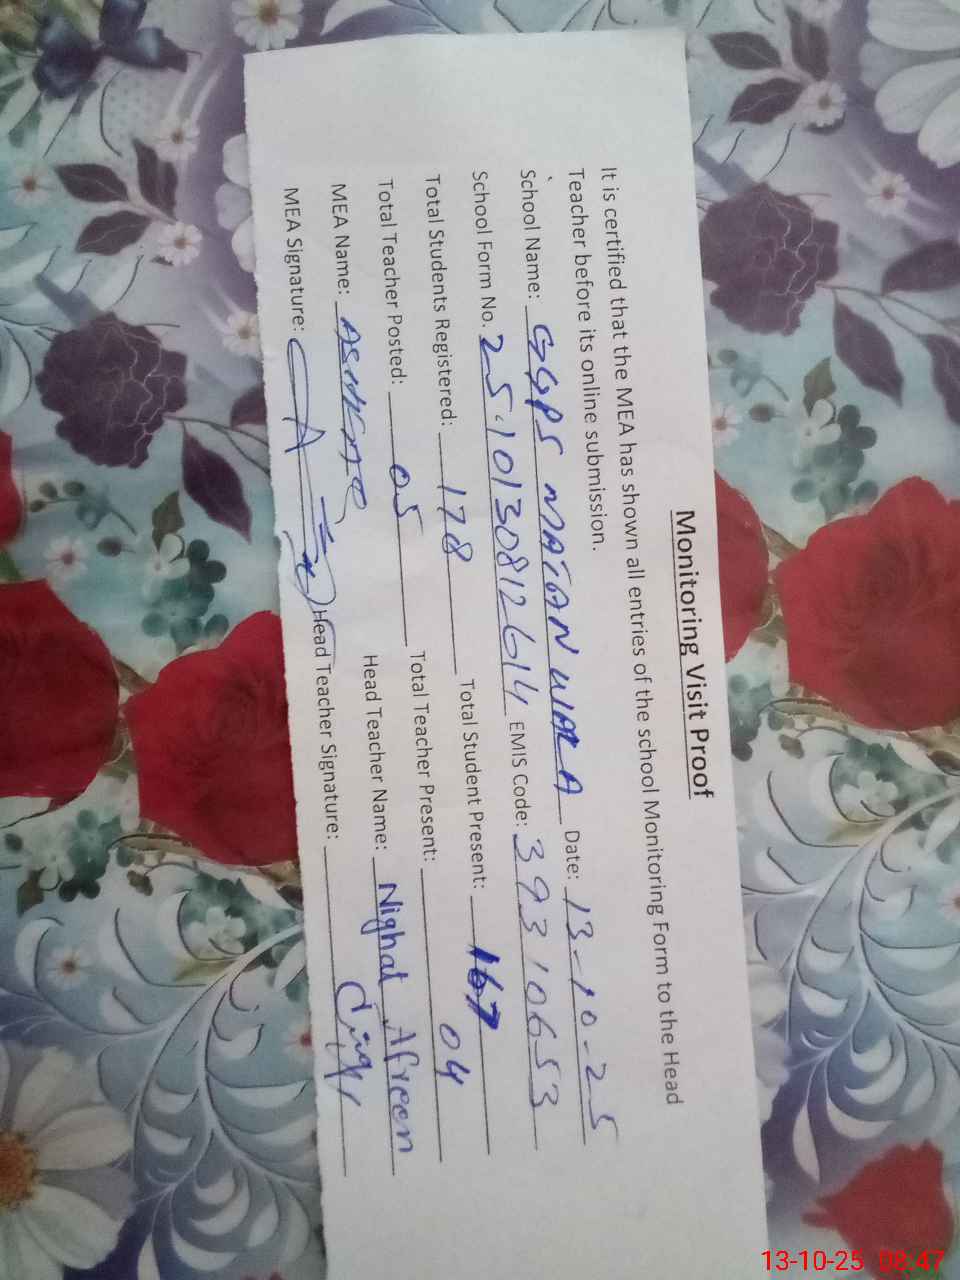 Monitoring Visit Proof
It is certified that the MEA has shown all entries of the school Monitoring Form to the Head
Teacher before its online submission.
School Name: GGPS MAIAN WALA Date: 13-10-25
School Form No. 25-10130812614 EMIS Code: 39310653
Total Students Registered: 178 Total Student Present: 167
Total Teacher Posted: 05 Total Teacher Present: 04
MEA Name: Head Teacher Name: Nighat Afreen
MEA Signature: Head Teacher Signature:
13-10-25 08:47